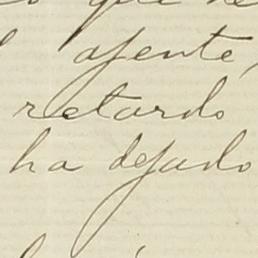 que
ajente,
retardo
ha dejado